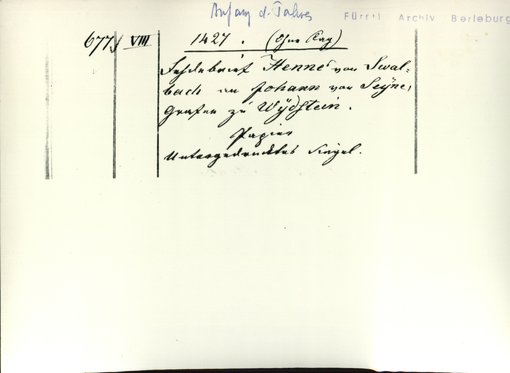 Anfang d. Jahres
Fürstl. Archiv Berleburg
677. VIII 1427. (Ohne Tag)
Fehdebrief Henne von Swal-
bach an Johann von Seyne,
Grafen zu Wydstein.
Papier
Untergedrucktes Siegel.